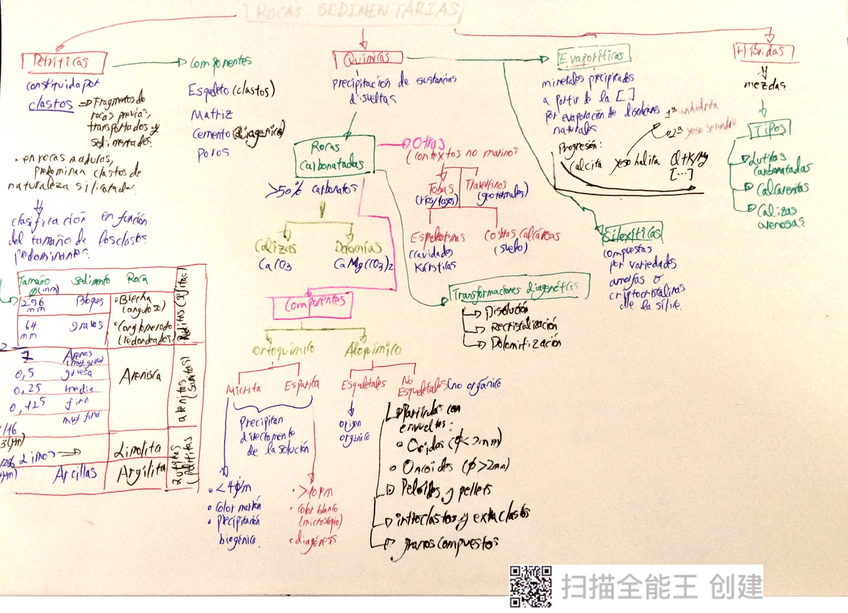 ROCAS SEDIMENTARIAS
Detríticas
constituida por
clastos
Fragmentos de
rocas previas,
transportados y
sedimentados.
• en rocas maduras,
predominan clastos de
naturaleza silicatada
clasificación en función
del tamaño de los clastos
predominantes.
Componentes
Esqueleto (clastos)
Matriz
Cemento (diagénico)
Poros.
Tamaño
(mm)
sedimento
Roca
256
mm
Bloques
• Brecha
(anguloso)
64
mm
gravas
• Conglomerado
(redondeados)
Ruditas
2
Arenas
0,5
gruesa
0,25
media
0,125
fina
muy fina
Arenisca
arenitas
1/16
Limos
Limolita
Arcillas
Argilita
Lutitas
(Pelitas)
Químicas
precipitación de sustancias
disueltas
Rocas
carbonatadas
>50% carbonatos
Calizas
CaCO3
Dolomías
CaMg(CO3)2
Otras
(contextos no marinos)
Tobas
Travertinos
(geotermales)
Espeleotemas
(cavidades
kársticas
Costras calcáreas
(suelo)
Transformaciones diagenéticas
Disolución
Recristalización
Dolomitización
Componentes
Ortoquímico
Aloquímico
Micrita
Esparita
Precipitan
directamente
de la solución
• <4µm
• color marrón
• precipitación
biogénico.
• >10µm
• color blanco
(microscopio)
• diagénesis
Esqueletales
origen
orgánico
No
Esqueletales (no orgánico)
Partículas con
envueltas:
• Ooides (φ<2mm)
• Oncoides (φ>2mm)
Peloides y pellets
intraclastos y extraclastos
granos compuestos
Evaporíticas
minerales precipitados
a partir de la [...]
por evaporación de disoluciones
naturales
Progresión:
Calcita yeso halita
[...]
1º anhidrita
2º yeso secundario
Silexíticas
compuestas
por variedades
amorfas o
criptocristalinas
de la sílice.
Híbridas
mezclas
Tipos
Lutitas
carbonatadas
Calcarenitas
Calizas
arenosas
扫描全能王 创建